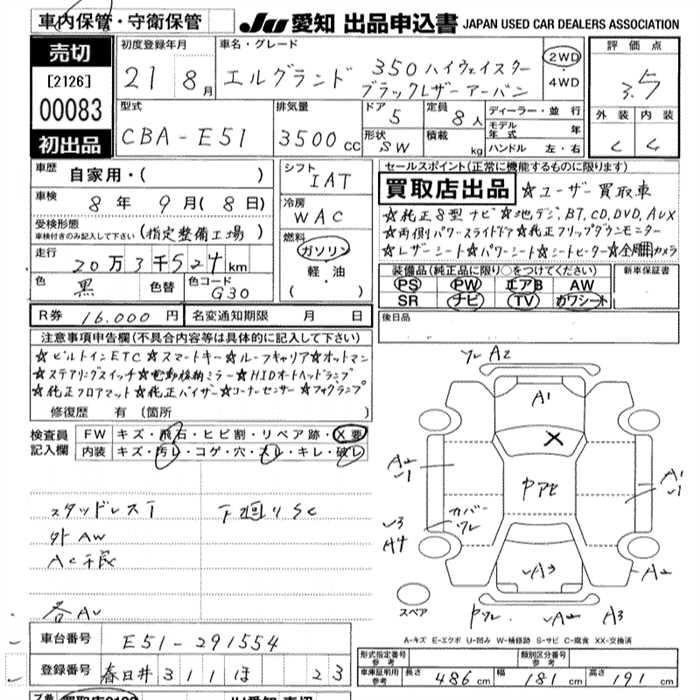 車内保管・守衛保管
JU 愛知 出品申込書 JAPAN USED CAR DEALERS ASSOCIATION
売切
[2126]
00083
初出品
初度登録年月
21 8月
車名・グレード
エルグランド 350 ハイウェイスター
ブラックレザー アーバン
2WD
・
4WD
評価点
3.5
型式
CBA-E51
排気量
3500cc
ドア
5
定員
8人
形状
SW
積載
kg
ディーラー・並行
モデル年式 年
ハンドル 左・右
外装 内装
C C
車歴
自家用・( )
車検
8年 9月(8日)
受検形態
車検付きのみ記入して下さい (指定整備工場)
走行
20万3千524km
色 黒 色替 色コード G30
シフト
IAT
冷房
WAC
燃料
ガソリン
・
軽・油
( )
セールスポイント(正常に機能するものに限ります)
買取店出品 ☆ユーザー買取車
☆純正8型ナビ☆地デジ,BT,CD,DVD,AUX
☆両側パワースライドドア☆純正フリップダウンモニター
☆レザーシート☆パワーシート☆シートヒーター☆全周囲カメラ
装備品(純正品に限り○をつけてください)
PS PW エアB AW
SR ナビ TV カワシート
新車保証書
後日品
R券 16,000円 名変通知期限 月 日
注意事項申告欄(不具合内容等は具体的に記入して下さい)
☆ビルトインETC☆スマートキー☆ルーフキャリア☆オットマン
☆ステアリングスイッチ☆電動格納ミラー☆HIDオートヘッドランプ
☆純正フロアマット☆純正バイザー☆コーナーセンサー☆フォグランプ
修復歴 有 (箇所 )
検査員
記入欄
FW キズ・飛石・ヒビ割・リペア跡・X要
内装 キズ・汚レ・コゲ・穴・スレ・キレ・破レ
スタッドレスT 下廻りSC
外AW
各AU
A2
A1
X
A2
A1
カバーワレ
A4
A3
A2
A2 A3
スペア
A-キズ E-エクボ U-凹み W-補修跡 S-サビ C-腐食 XX-交換済
車台番号 E51-291554
登録番号 春日井 311 ほ 23
形式指定番号
参考
類別区分番号
参考
車庫証明用
参考
長さ 486cm 幅 181cm 高さ 191cm